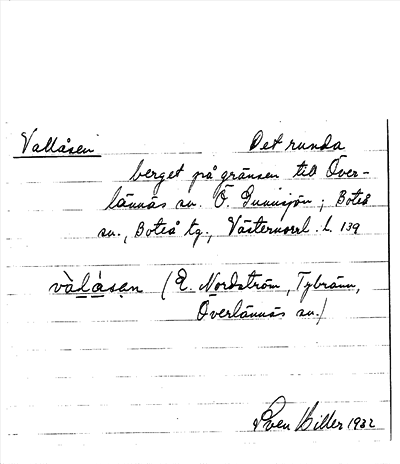 Vallåsen Det runda
berget på gränsen till Över-
lännäs sn. Ö. Gunnsjön; Boteå
sn., Boteå tg., Västernorrl. L. 139
vàlǻsen (E. Nordström, Tybränn,
Överlännäs sn.)
Sven Hiller 1932